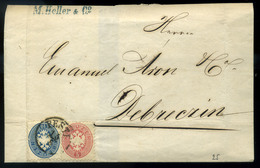 M. Heller & Co
Herrn
Emanuel Aron & Co
Debreczin
PEST
25